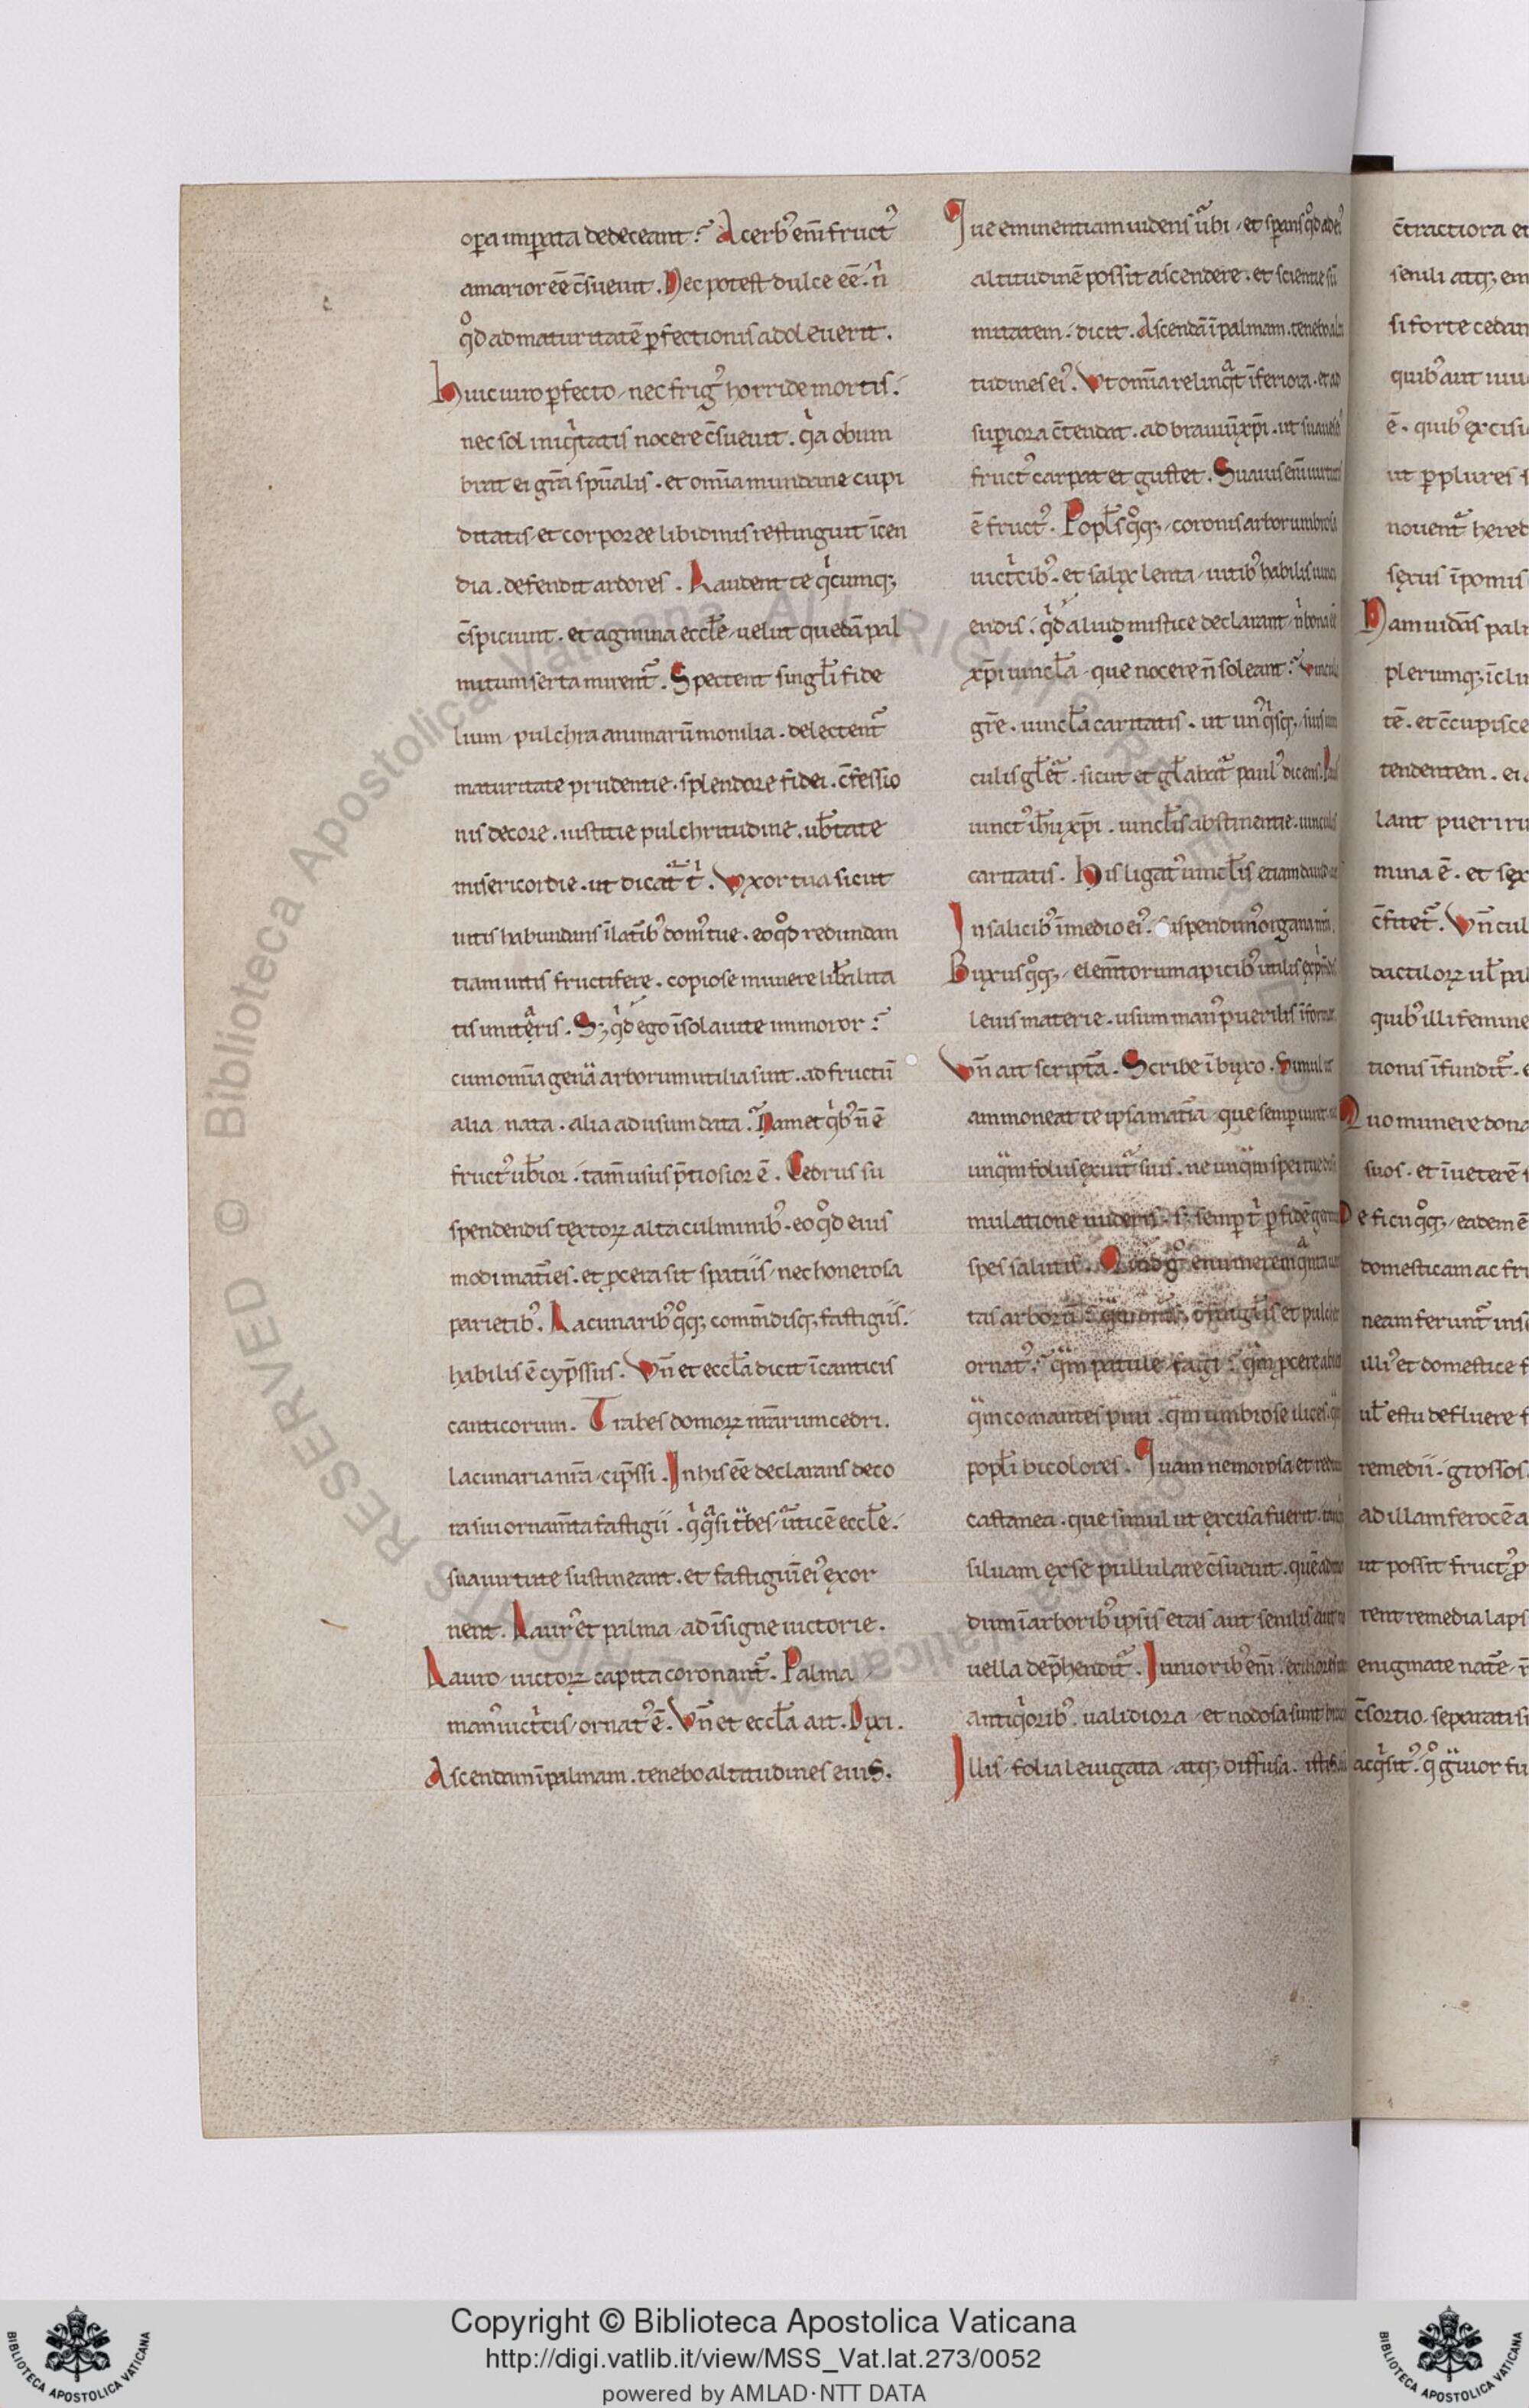 oꝑa imꝑata dedeceant. Acerbꝰ eni᷑ fructꝰ
amarior ee᷑ c̄sueuit. Nec potest dulce ee᷑. n̓
qͦd ad maturitatē ꝑfectionis adoleuerit.
Huic uiro ꝑfecto, nec frigꝰ horride mortis.
nec sol iniqͥtatis nocere c̄sueuit. qͥa obum
brat ei gr̄a sp̄ualis. et om̄ia mundane cupi
ditatis, et corporee libidinis restinguit īcen
dia. defendit ardores. Laudent te qͥcumqꝫ
c̄spiciunt. et agmina eccl̄e, uelut quedā pal
mitum serta mirent᷑. Spectent singl̄i fide
lium, pulchra animarū monilia. delectent᷑
maturitate prudentie. splendore fidei. c̄fessio
nis decore. iustitie pulchritudine. ub̄tate
misericordie. ut dicat᷑ tͥ. Vxor tua sicut
uitis habundans ī lat̄ibꝰ domꝰ tue. eo qͦd redundan
tiam uitis fructifere. copiose munere lib̄alita
tis imit̄eris. Sꝫ qͥd ego ī sola uite immoror?
cum om̄ia gen̄a arborum utilia sint. ad fructū
alia nata. alia ad usum data. Nam et qͥbꝰ n̄ ē
fructꝰ ub̄ior. tam̄ usus p̄tiosior ē. Cedrus su
spendendis tęctoꝝ alta culminibꝰ. eo qͦd eius
modi mat̄ies. et ꝓcera sit spatiis, nec honerosa
parietibꝰ. Lacunaribꝰ qͦqꝫ comm̄disqꝫ fastigiis.
habilis ē cyp̄ssus. Vn̄ et eccl̄a dicit ī canticis
canticorum. Trabes domoꝝ nr̄arum cedri.
lacunaria nr̄a, cip̄ssi. In his ee᷑ declarans deco
ra sui ornam̄ta fastigii. qͥ qͣsi tͣbes, u᷑ticē eccl̄e.
sua uirtute sustineant. et fastigiū eiꝰ exor
nent. Laurꝰ et palma, ad īsigne uictorie.
Lauro, uictoꝝ capita coronant᷑. Palma,
manꝰ uictͥcis, ornatꝰ ē. Vn̄ et eccl̄a ait. Dixi.
Ascendam ī palmam. tenebo altitudines eius.
Que eminentiam uidens u᷑bi, et sꝑans qͦd ad eiꝰ
altitudinē possit ascendere. et scientie sū
mitatem. dicit. Ascendā ī palmam. tenebo alti
tudines eiꝰ. Vt om̄ia relinqͣt īferiora. et ad
suꝑiora c̄tendat. ad brauiū xp̄i. ut suaues eiꝰ
fructꝰ carpat et gustet. Suauis eni᷑ uirtutis
ē fructꝰ. Popl̄s qͦqꝫ, coronis arbor umbrosa
uictͥcibꝰ. et salyx lenta, uitibꝰ habilis uinci
endis. qͥd aliud mistice declarant, n̓ bona
xp̄i uincl̄a, que nocere n̄ soleant? Vincula
gr̄e. uincl̄a caritatis. ut unꝰ qͥsqꝫ, suis uin
culis gl̄et᷑. sicut et gl̄abat᷑ paulꝰ dicens. Paulꝰ
uinctꝰ ih̄u xp̄i. uincl̄is abstinentie. uinculis
caritatis. His ligatꝰ uincl̄is etiam dauid ait
In salicibꝰ ī medio eiꝰ. suspendimꝰ organa nr̄a.
Buxus qͦqꝫ, elem̄torum apicibꝰ utilis
leuis materie. usum manꝰ puerilis īformat.
Vn̄ ait scriptͣa. Scribe ī buxo. Simul ut
ammoneat te ipsa mat̄ia, que semꝑ uiret ut
unqͣm foliis exuit᷑ suis. ne unqͣm spei tue dis
mulatione nuderis. sꝫ semꝑ tͥ ꝑ fidē germinet
spes salutis. Quid gͦ enumerem qͣnta uarie
tas arborū
ornatꝰ. qͣm patule fagi. qͣm ꝓcere abietes
qͣm comantes pini. qͣm umbrose ilices.
popl̄i bicolores. Quam nemorosa et rediuiua
castanea. que simul ut excisa fuerit. tamqͣm
siluam ex se pullulare c̄sueuit. quē admo
dum ī arboribꝰ ipsis etas aut senilis aut no
uella dep̄hendit᷑. Iunioribꝰ eni᷑, exiliores
antiqͥoribꝰ. ualidiora, et nodosa sunt brachia
Illis, folia leuigata, atqꝫ diffusa.
c̄tractiora et
senili atqꝫ em
si forte cedan
quibꝰ aut
ē. quibꝰ excisi
ut ꝑ plures s
nouent᷑ hered
sexus ī pomis
Nam uidās palm
plerumqꝫ īcli
tē. et c̄cupisce
tendentem. ei.
lant pueri ru
mina ē. et sex
c̄fitet᷑. Vn̄ cul
dactiloꝝ ul̄ pal
quibꝰ illi femine
tionis īfundit᷑. e
Quo munere dona
suos. et ī ueterē s
De ficu qͦqꝫ, eadem ē
domesticam ac fru
neam ferunt᷑ ins
illiꝰ et domestice f
ul̄ estu defluere f
remedii. grossos
ad illam ferocē a
ut possit fructꝰ ꝓ
rent remedia laps
enigmate nat̄e, n̄
c̄sortio, separati si
acqͥsit᷑. qͦ gͣuior fu
Copyright © Biblioteca Apostolica Vaticana
http://digi.vatlib.it/view/MSS_Vat.lat.273/0052
powered by AMLAD·NTT DATA
BIBLIOTECA APOSTOLICA VATICANA
BIBLIOTECA APOSTOLICA VATICANA